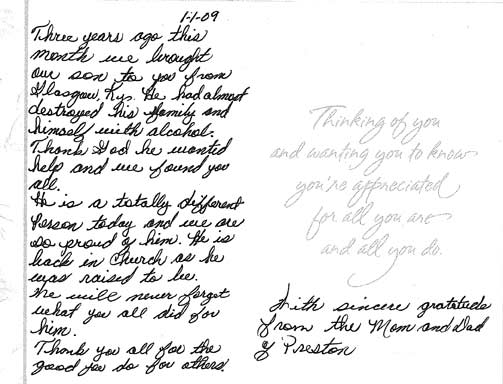 1-1-09
Three years ago this
month we brought
our son to you from
Glasgow, Ky. He had almost
destroyed his family and
himself with alcohol.
Thank God he wanted
help and we found you
all.
He is a totally different
person today and we are
so proud of him. He is
back in Church as he
was raised to be.
We will never forget
what you all did for
him.
Thank you all for the
good you do for others
Thinking of you
and wanting you to know
you're appreciated
for all you are
and all you do.
With sincere gratitude
from the Mom and Dad
of Preston